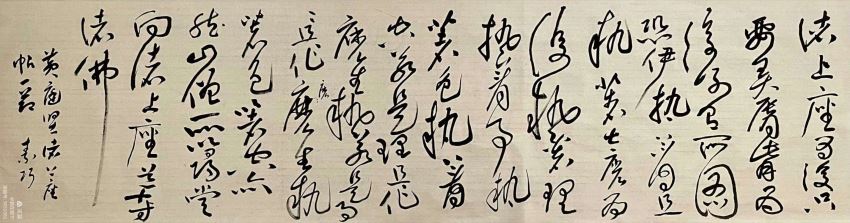 諸上座為復只
要弄唇嘴為
復別有所圖
恐伊執著且
執著甚麼為
復執著理
執著事執
著色執著
空若是理且作
麼生執若是事
且作麼生執
著色著空亦
然山僧所以尋常
向諸上座道十方
諸佛
黃庭堅諸上座
帖一節